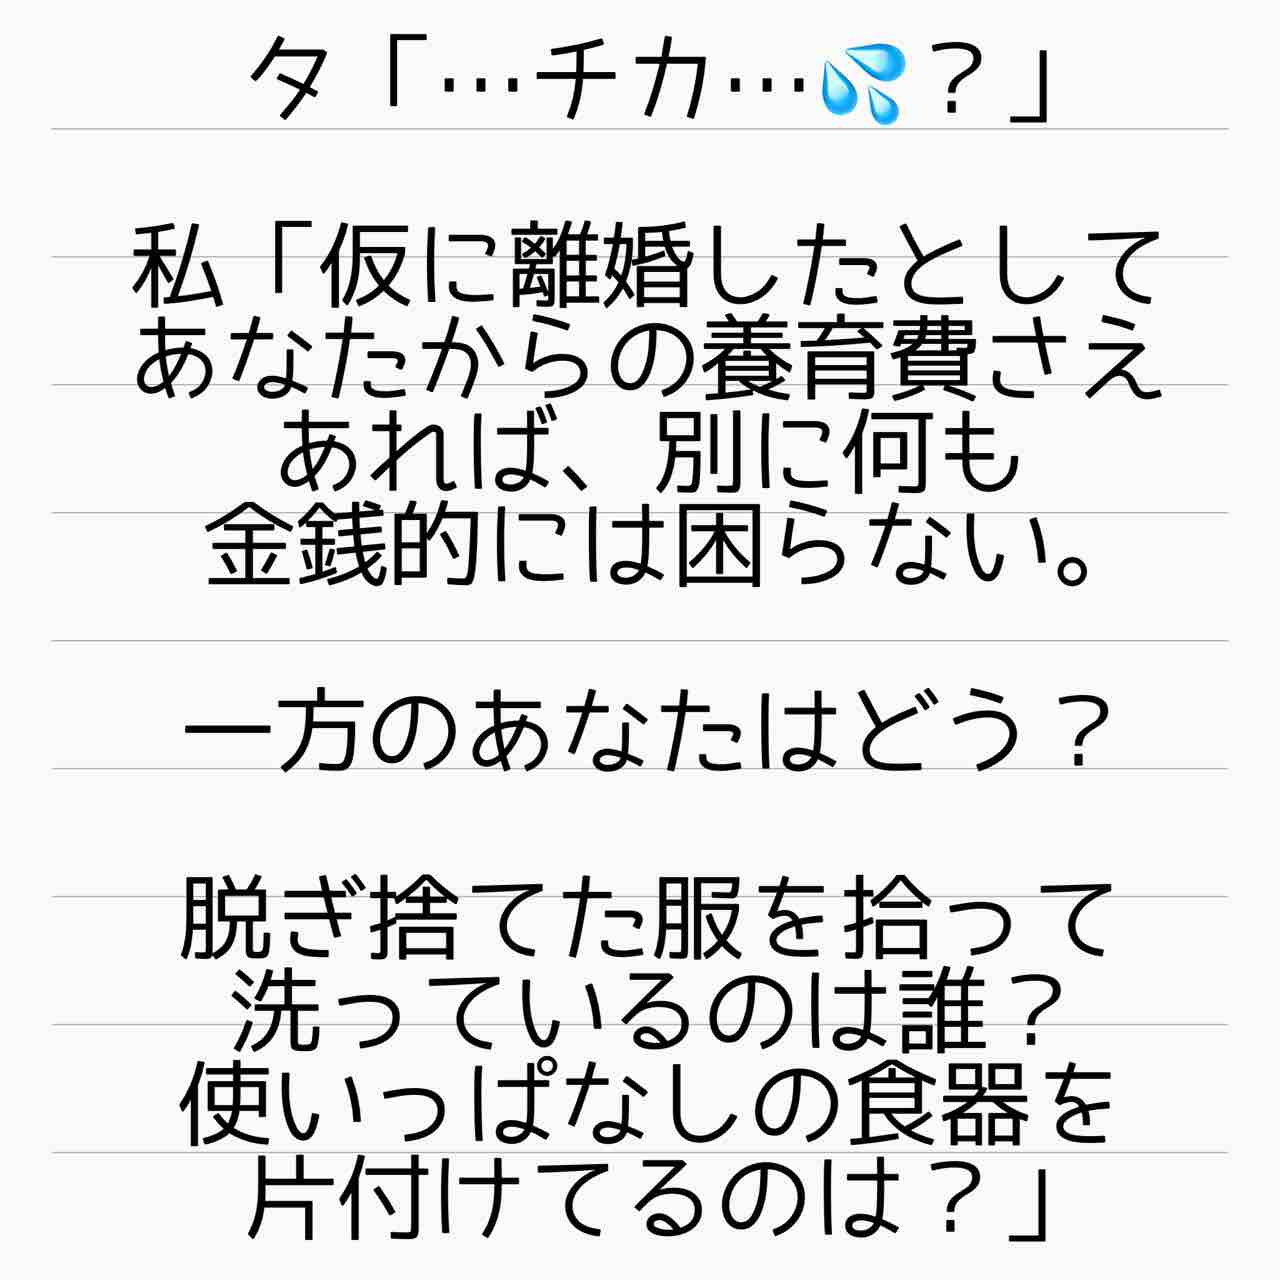 タ「…チカ…💦？」
私「仮に離婚したとして
あなたからの養育費さえ
あれば、別に何も
金銭的には困らない。
一方のあなたはどう？
脱ぎ捨てた服を拾って
洗っているのは誰？
使いっぱなしの食器を
片付けてるのは？」